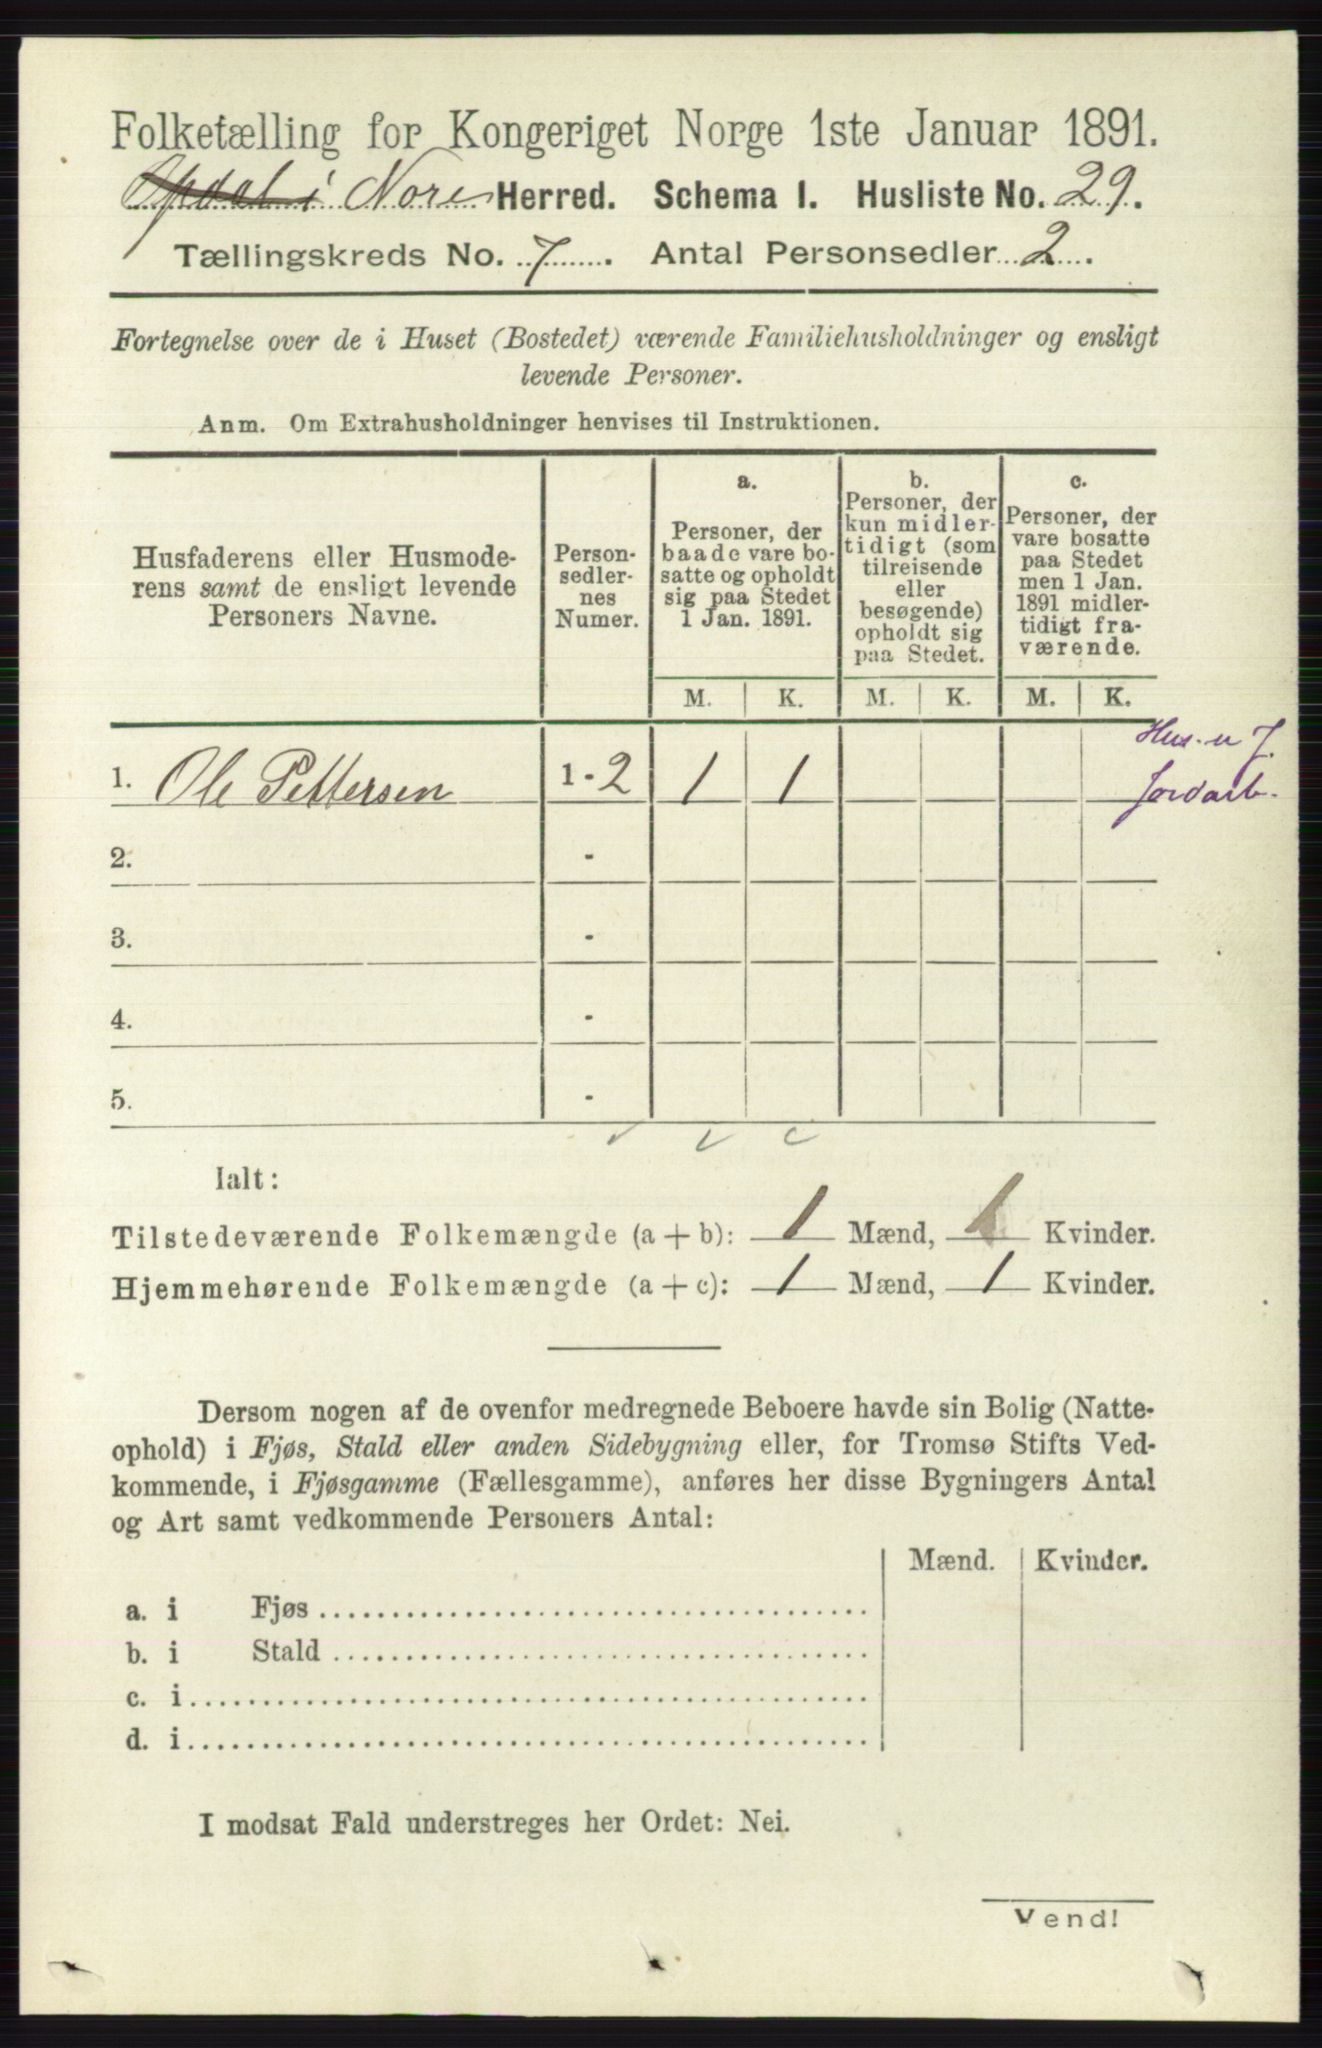 Folketælling for Kongeriget Norge 1ste Januar 1891.
Opdal i Nore Herred. Schema I. Husliste No. 29.
Tællingskreds No. 7. Antal Personsedler 2.
Fortegnelse over de i Huset (Bostedet) værende Familiehusholdninger og ensligt
levende Personer.
Anm. Om Extrahusholdninger henvises til Instruktionen.
Husfaderens eller Husmode-
rens samt de ensligt levende
Personers Navne.
Person-
sedler-
nes
Numer.
a.
Personer, der
baade vare bo-
satte og opholdt
sig paa Stedet
1 Jan. 1891.
b.
Personer, der
kun midler-
tidigt (som
tilreisende
eller
besøgende)
opholdt sig
paa Stedet.
c.
Personer, der
vare bosatte
paa Stedet
men 1 Jan.
1891 midler-
tidigt fra-
værende.
M. K. M. K. M. K.
1. Ole Pettersen 1 - 2 1 1
Hus. u J.
Jordarb.
2. -
3. -
4. -
5. -
Ialt:
Tilstedeværende Folkemængde (a + b): 1 Mænd, 1 Kvinder.
Hjemmehørende Folkemængde (a + c): 1 Mænd, 1 Kvinder.
Dersom nogen af de ovenfor medregnede Beboere havde sin Bolig (Natte-
ophold) i Fjøs, Stald eller anden Sidebygning eller, for Tromsø Stifts Ved-
kommende, i Fjøsgamme (Fællesgamme), anføres her disse Bygningers Antal
og Art samt vedkommende Personers Antal:
Mænd. Kvinder.
a. i Fjøs
b. i Stald
c. i
d. i
I modsat Fald understreges her Ordet: Nei.
Vend!